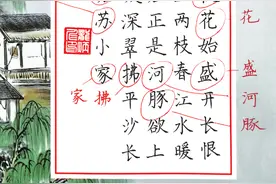 花始盛开长恨
两枝春江水暖
正是河豚欲上
深翠拂平沙长
苏小家
花
盛
河
豚
家
拂